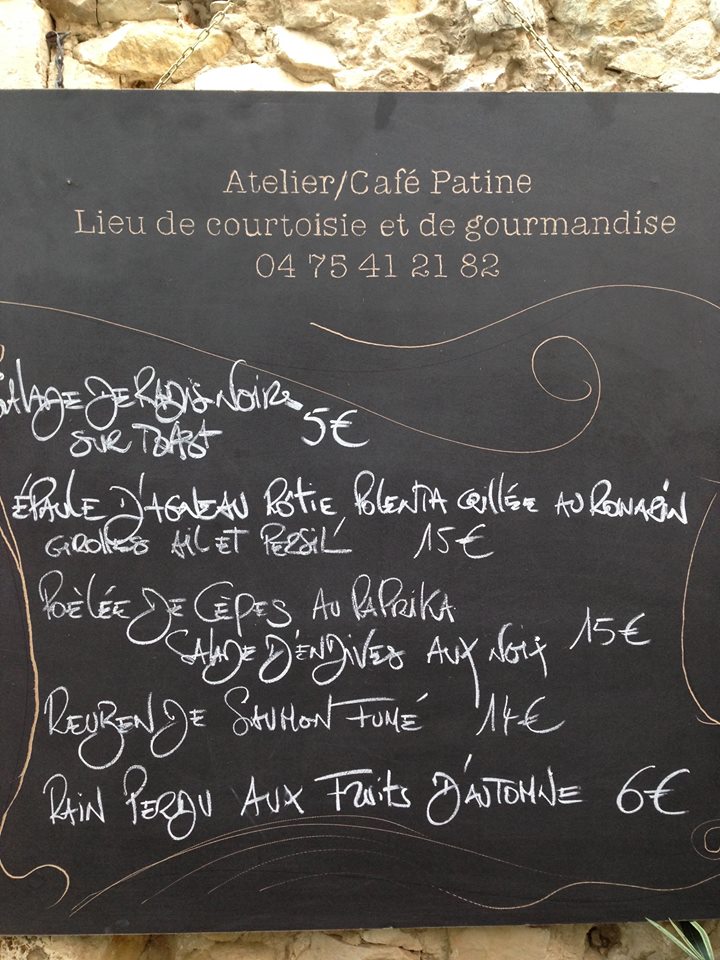 Atelier/Café Patine
Lieu de courtoisie et de gourmandise
04 75 41 21 82
SALADE DE RADIS NOIRS
SUR TOAST 5€
ÉPAULE D'AGNEAU RÔTIE POLENTA GRILLÉE AU ROMARIN
GIROLLES AIL ET PERSIL 15€
POÈLÉE DE CÈPES AU PAPRIKA
SALADE D'ENDIVES AUX NOIX 15€
REUBEN DE SAUMON FUMÉ 14€
PAIN PERDU AUX FRUITS D'AUTOMNE 6€